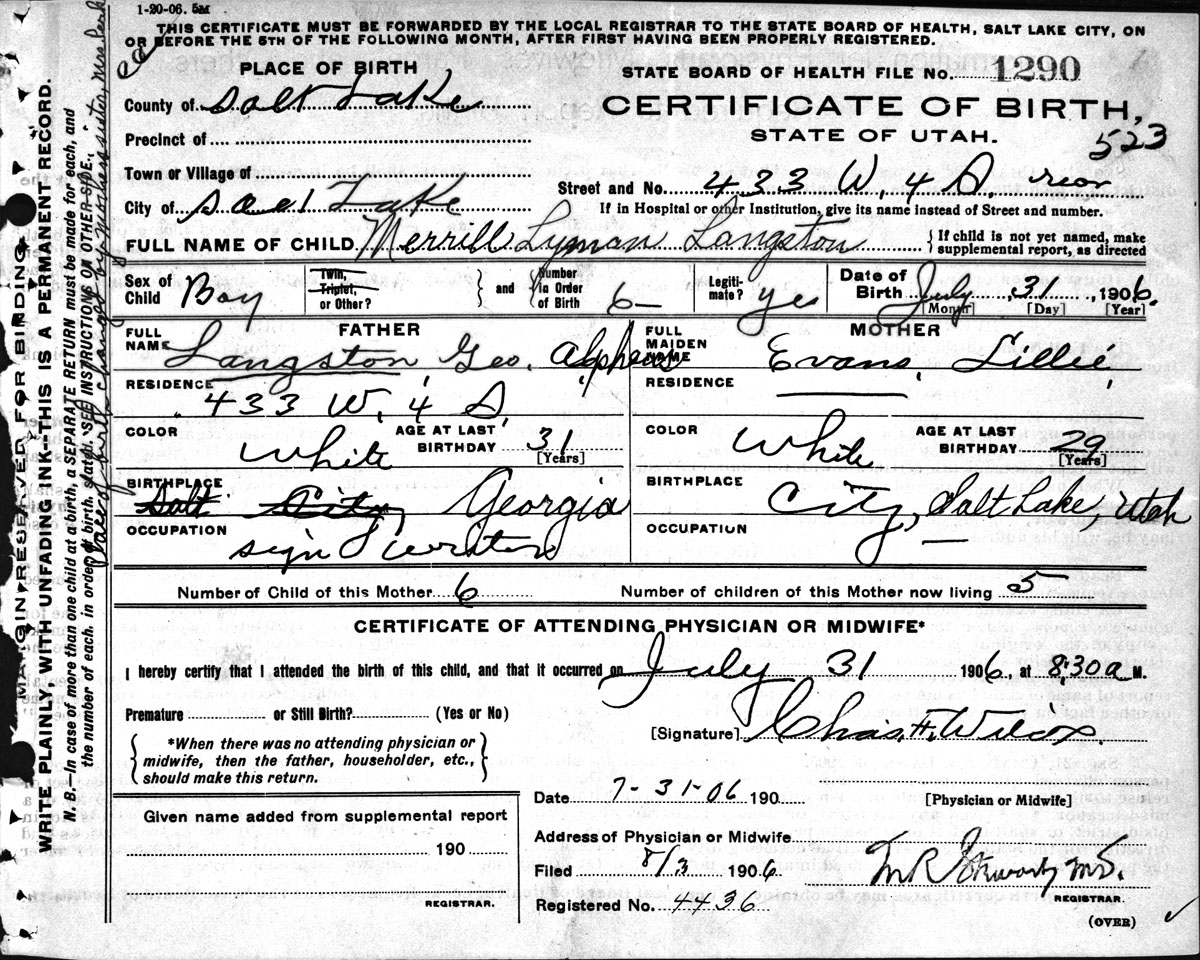 1-20-06. 5M
THIS CERTIFICATE MUST BE FORWARDED BY THE LOCAL REGISTRAR TO THE STATE BOARD OF HEALTH, SALT LAKE CITY, ON
OR BEFORE THE 5TH OF THE FOLLOWING MONTH, AFTER FIRST HAVING BEEN PROPERLY REGISTERED.
PLACE OF BIRTH
STATE BOARD OF HEALTH FILE NO. 1290
County of Salt Lake
CERTIFICATE OF BIRTH,
STATE OF UTAH.
523
Precinct of
Town or Village of
Street and No. 433 W, 4 S,
City of Salt Lake
If in Hospital or other Institution, give its name instead of Street and number.
FULL NAME OF CHILD Merrill Lyman Langston
If child is not yet named, make
supplemental report, as directed
Sex of Child Boy
Twin, Triplet, or Other?
and
Number in Order of Birth 6
Legiti-mate? yes
Date of Birth July 31, 1906.
[Month] [Day] [Year]
FATHER
FULL NAME Langston Geo. Alpheus
RESIDENCE 433 W, 4 S,
COLOR White
AGE AT LAST BIRTHDAY 31
[Years]
BIRTHPLACE Salt City, Georgia
OCCUPATION sign
MOTHER
FULL MAIDEN NAME Evans, Lillie,
RESIDENCE
COLOR White
AGE AT LAST BIRTHDAY 29
[Years]
BIRTHPLACE City, Salt Lake, Utah
OCCUPATION —
Number of Child of this Mother 6
Number of children of this Mother now living 5
CERTIFICATE OF ATTENDING PHYSICIAN OR MIDWIFE*
I hereby certify that I attended the birth of this child, and that it occurred on July 31 1906, at 8:30 a M.
Premature or Still Birth? (Yes or No)
*When there was no attending physician or
midwife, then the father, householder, etc.,
should make this return.
[Signature] Chas. H. Wilcox.
Date 7-31-06 190
[Physician or Midwife]
Given name added from supplemental report
190
REGISTRAR.
Address of Physician or Midwife
Filed 8/3 1906
REGISTRAR.
Registered No. 4436
(OVER)
MARGIN RESERVED FOR BINDING
WRITE PLAINLY, WITH UNFADING INK--THIS IS A PERMANENT RECORD.
N. B.--In case of more than one child at a birth, a SEPARATE RETURN must be made for each, and
the number of each, in order of birth, stated. SEE INSTRUCTIONS ON OTHER SIDE.
Place of birth changed by mothers sister, Mrs